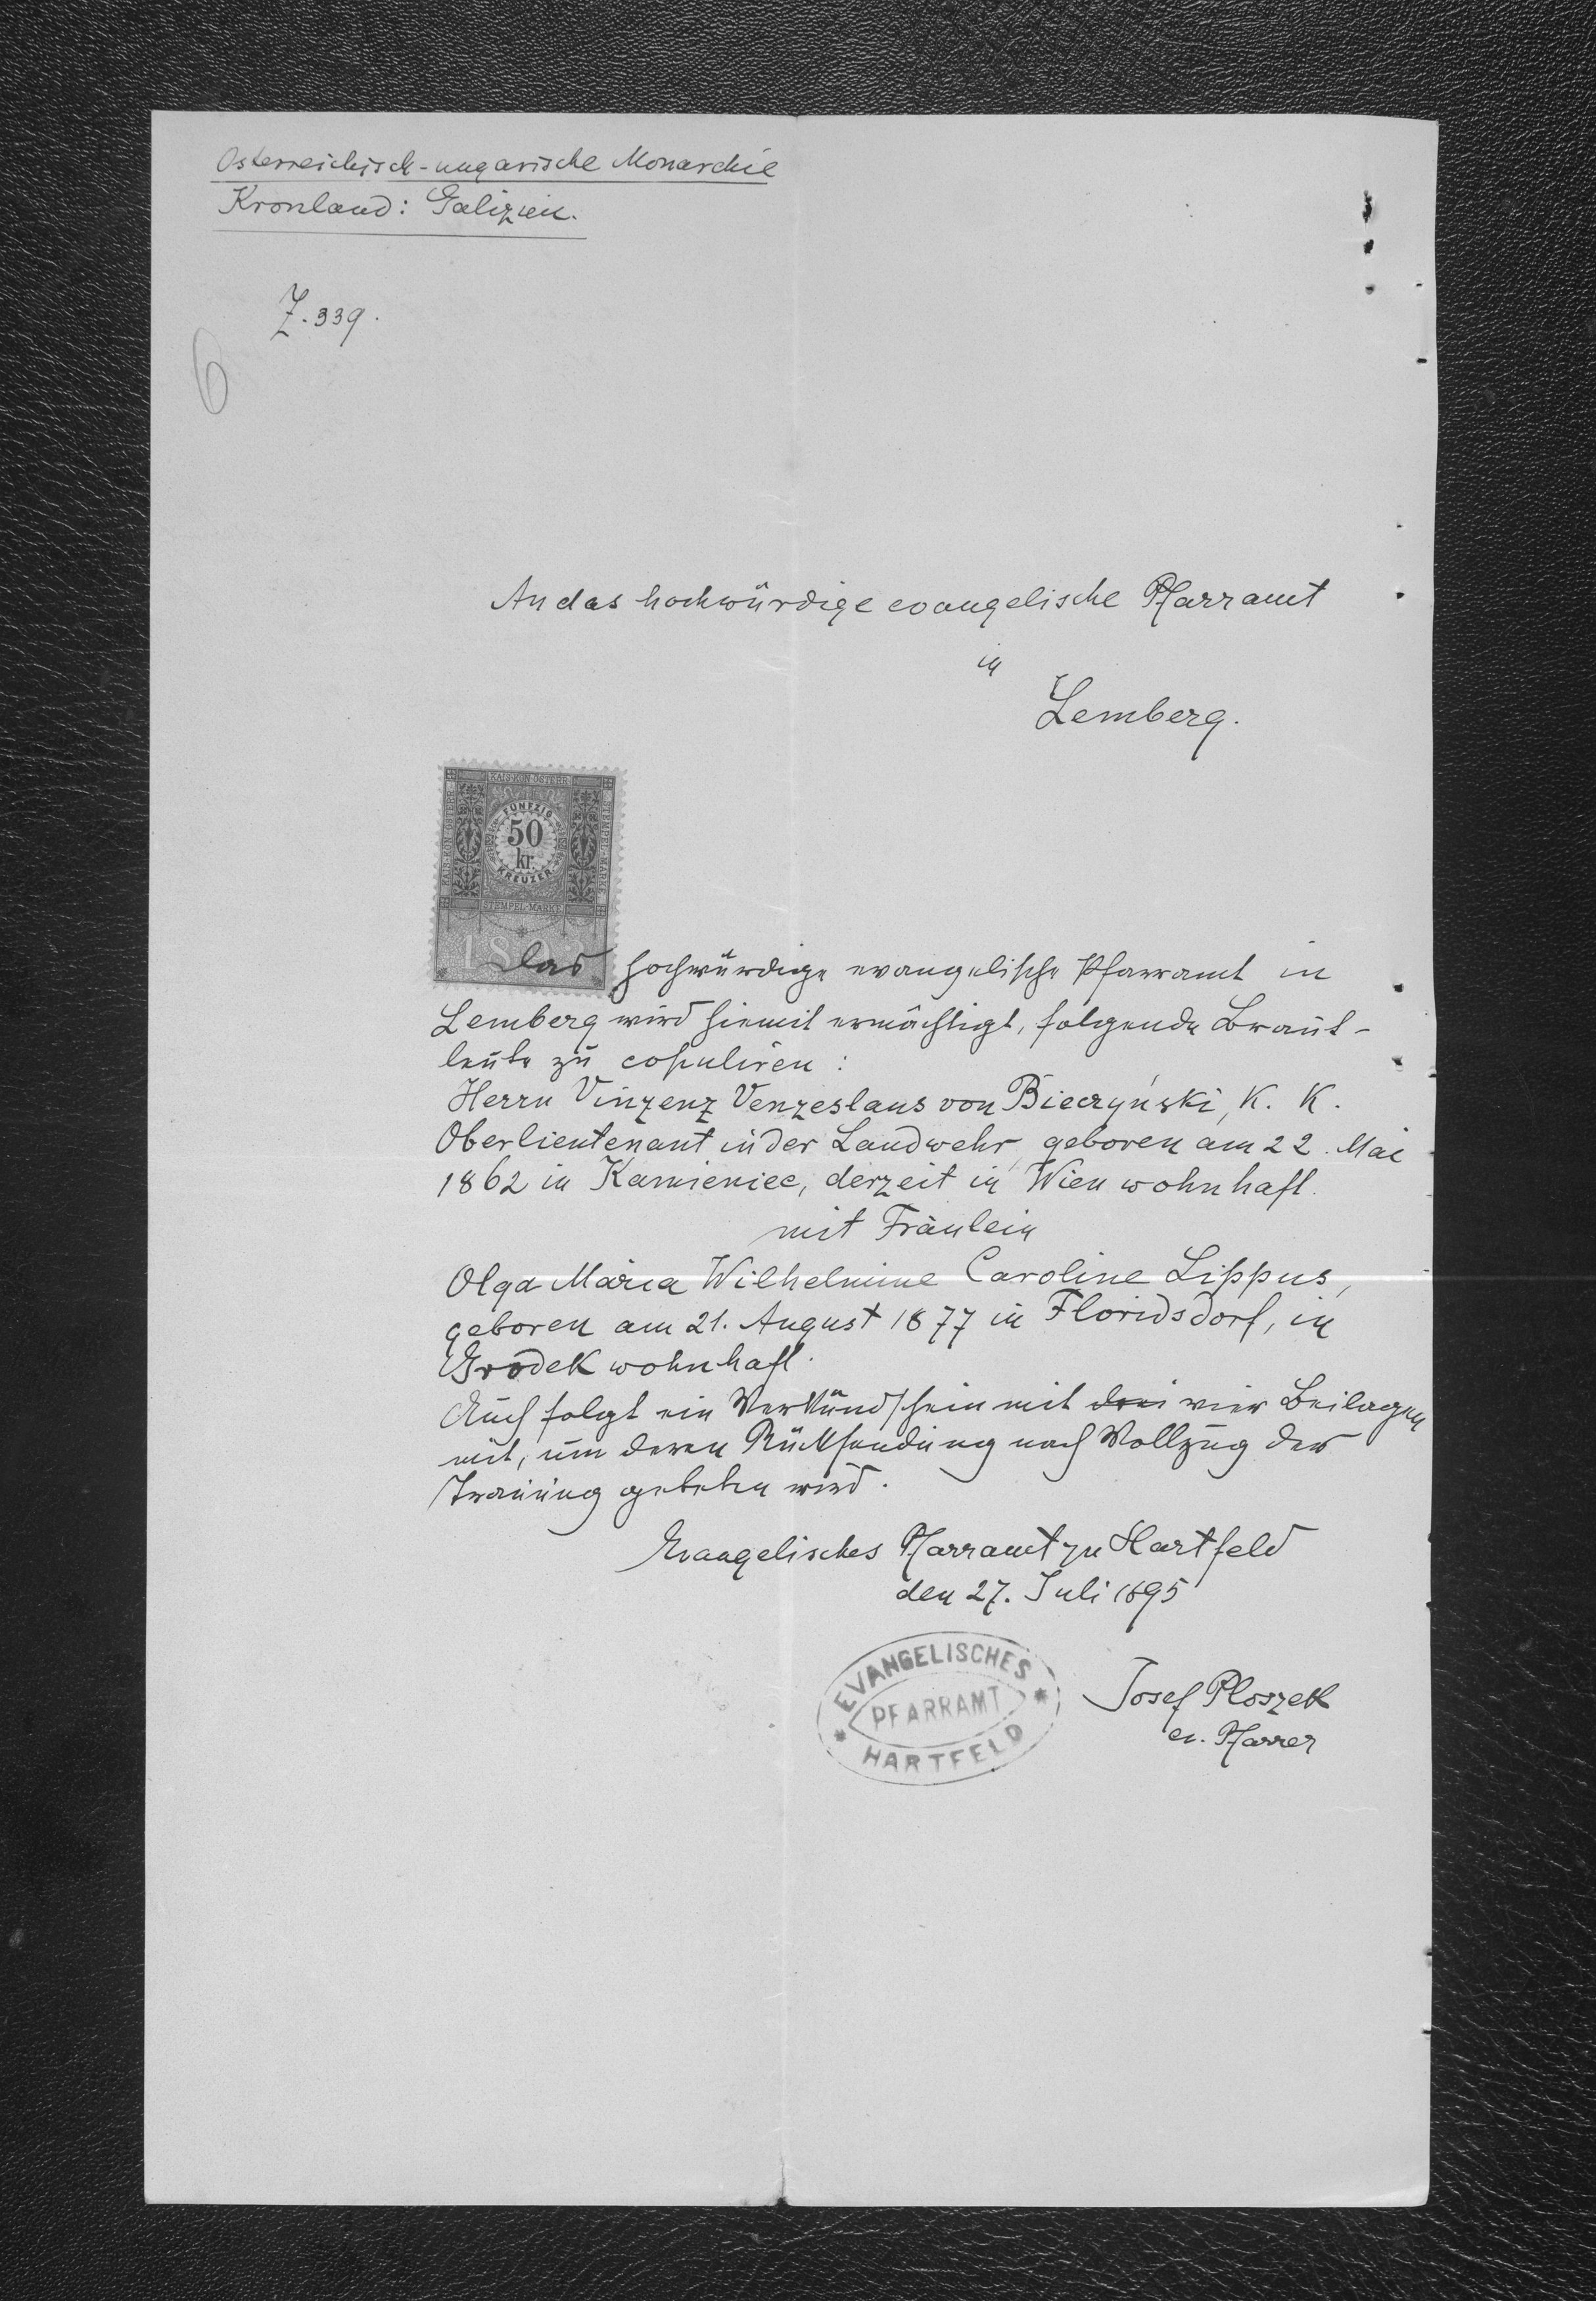 Osterreichisch-ungarische Monarchie
Kronland: Galizien.
Z. 339.
6
An das hochwürdige evangelische Pfarramt
in
Lemberg.
KAIS. KÖN. ÖSTERR.
KAIS. KÖN. ÖSTERR.
STEMPEL-MARKE
FÜNFZIG
50
kr.
KREUZER
STEMPEL-MARKE
Das hochwürdige evangelische Pfarramt in
Lemberg wird hiemit ermächtigt, folgende Braut-
leute zu copuliren:
Herrn Vinzenz Venzeslaus von Bieczyński, K. K.
Oberlieutenant in der Landwehr, geboren am 22. Mai
1862 in Kamieniec, derzeit in Wien wohnhaft.
mit Fräulein
Olga Maria Wilhelmine Caroline Lippus,
geboren am 21. August 1877 in Floridsdorf, in
Grodek wohnhaft.
Auch folgt ein Verkündschein mit drei vier Beilagen
mit, um deren Rücksendung nach Vollzug der
Trauung gebeten wird.
Evangelisches Pfarramt zu Hartfeld
den 27. Juli 1895
EVANGELISCHES
PFARRAMT
HARTFELD
Josef Ploszek
ev. Pfarrer